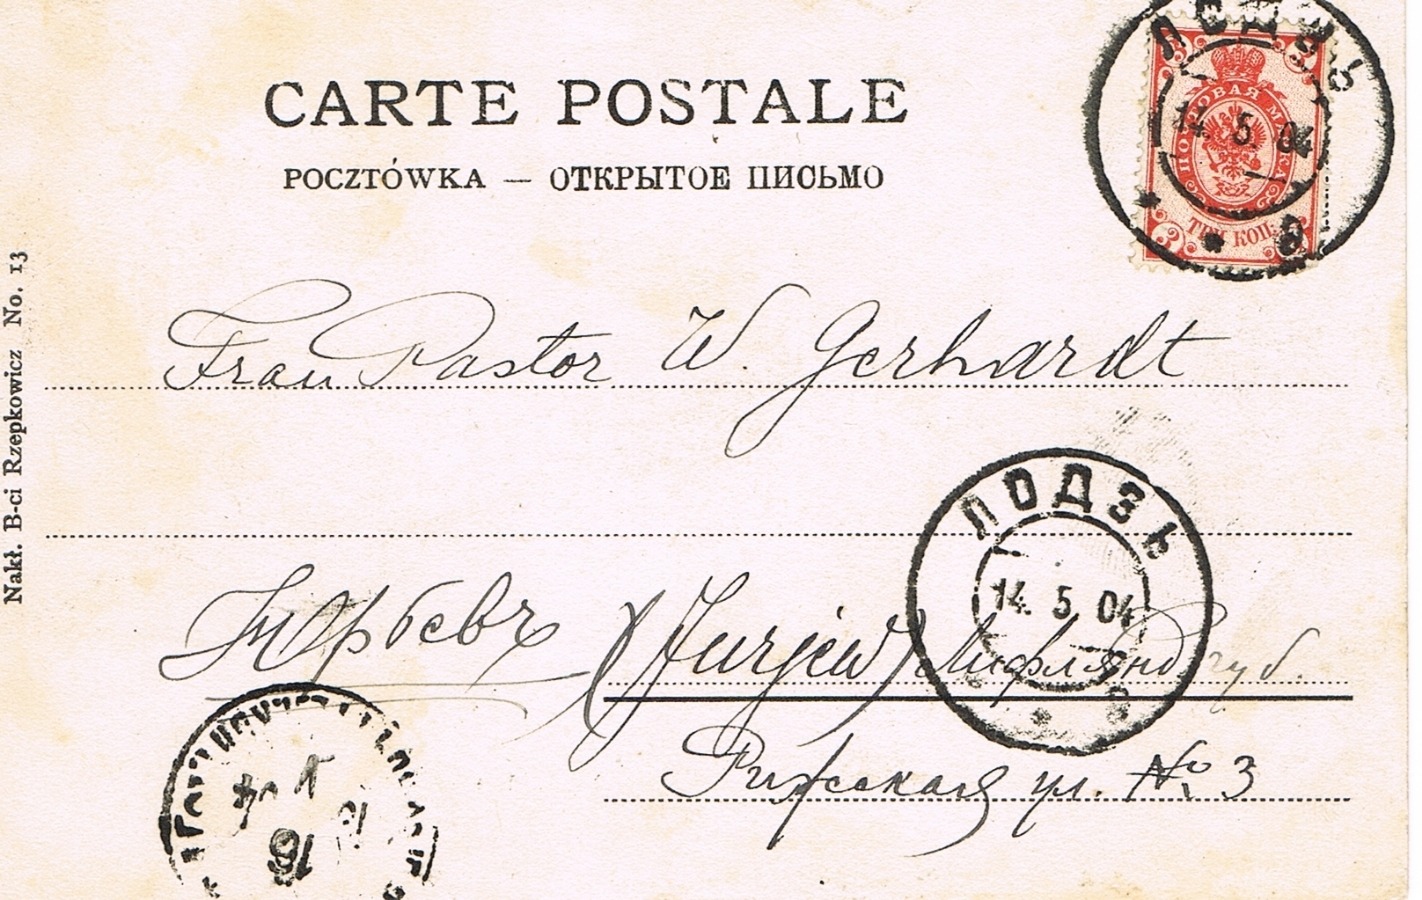 CARTE POSTALE
POCZTÓWKA — ОТКРЫТОЕ ПИСЬМО
ЛОДЗЬ
14. 5. 04
ПОЧТОВАЯ МАРКА
ТРИ КОП.
3
Nakł. B-ci Rzepkowicz No. 13
Frau Pastor W. Gerhardt
ЛОДЗЬ
14. 5. 04
Юрьевъ (Jurjew) Лифлянд губ.
Рижская ул. № 3